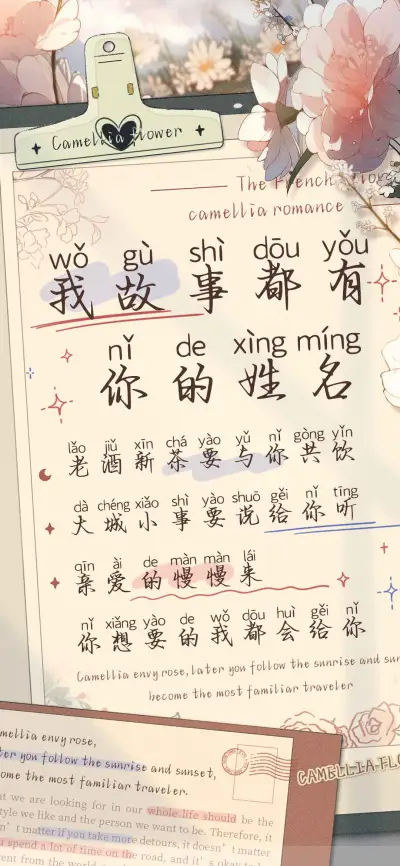 Camellia flower
The French
camellia romance
wǒ gù shì dōu yǒu
我故事都有
nǐ de xìng míng
你的姓名
lǎo jiǔ xīn chá yào yǔ nǐ gòng yǐn
老酒新茶要与你共饮
dà chéng xiǎo shì yào shuō gěi nǐ tīng
大城小事要说给你听
qīn ài de màn màn lái
亲爱的慢慢来
nǐ xiǎng yào de wǒ dōu huì gěi nǐ
你想要的我都会给你
Camellia envy rose, later you follow the sunrise and sun
become the most familiar traveler
mellia envy rose,
ter you follow the sunrise and sunset,
ome the most familiar traveler.
CAMELLIA FLO
at we are looking for in our whole life should be the
style we like and the person we want to be. Therefore, it
sn't matter if you take more detours, it doesn't matter
u spend a lot of time on the road, and it's okay to